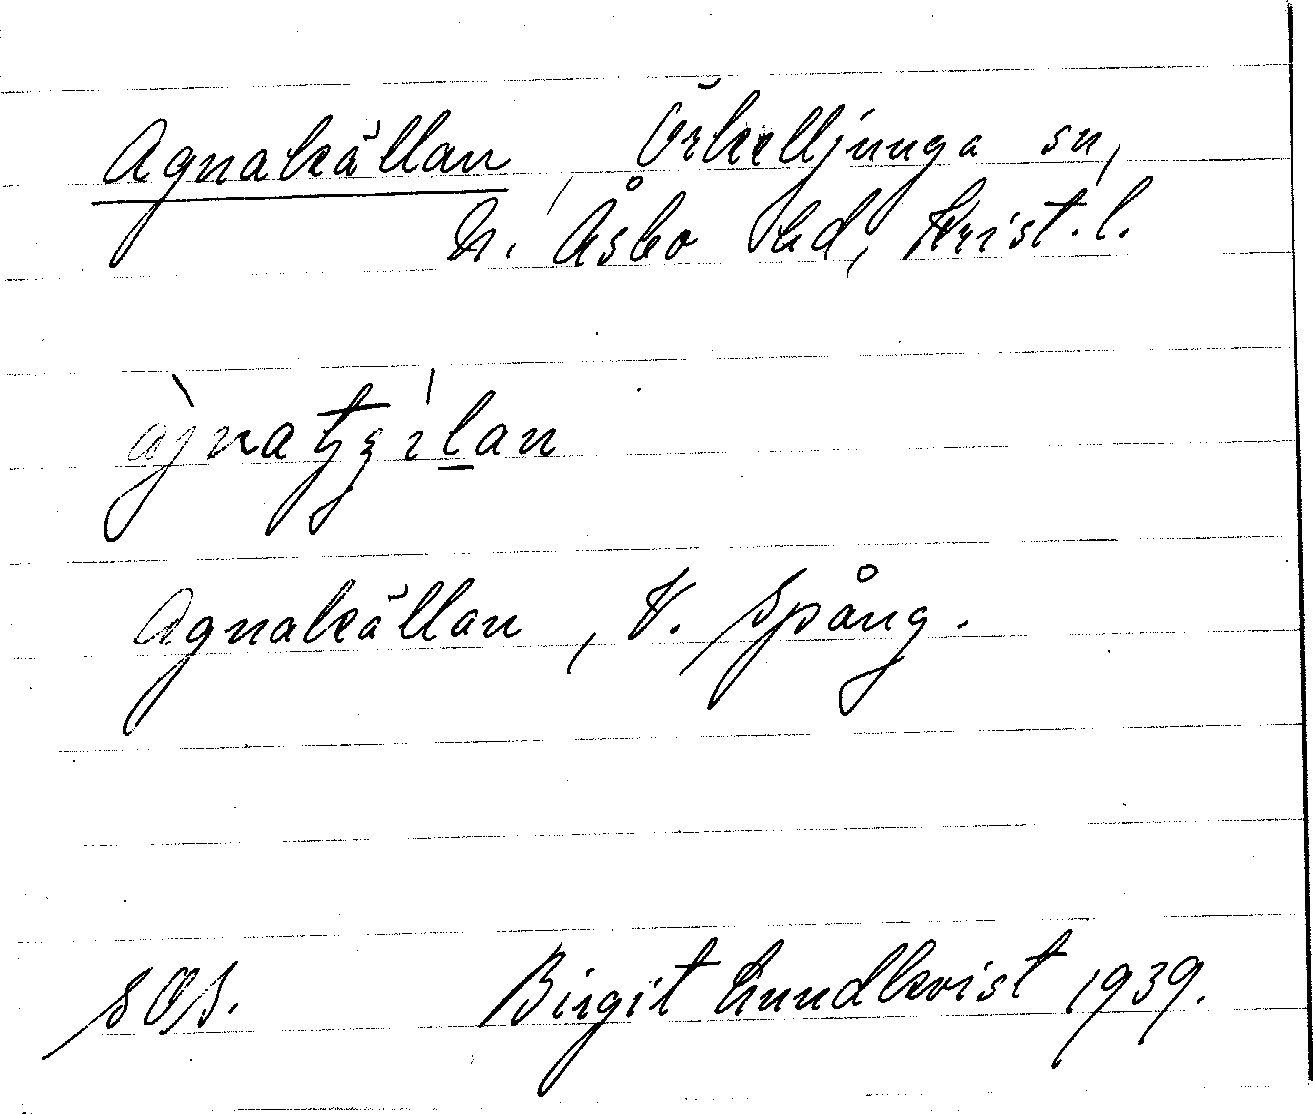 Agnakällan, Örkelljunga sn,
N. Åsbo hd, Krist. l.
àjnatʒílan
Agnakällan, V. Spång.
SOS. Birgit Lundkvist 1939.